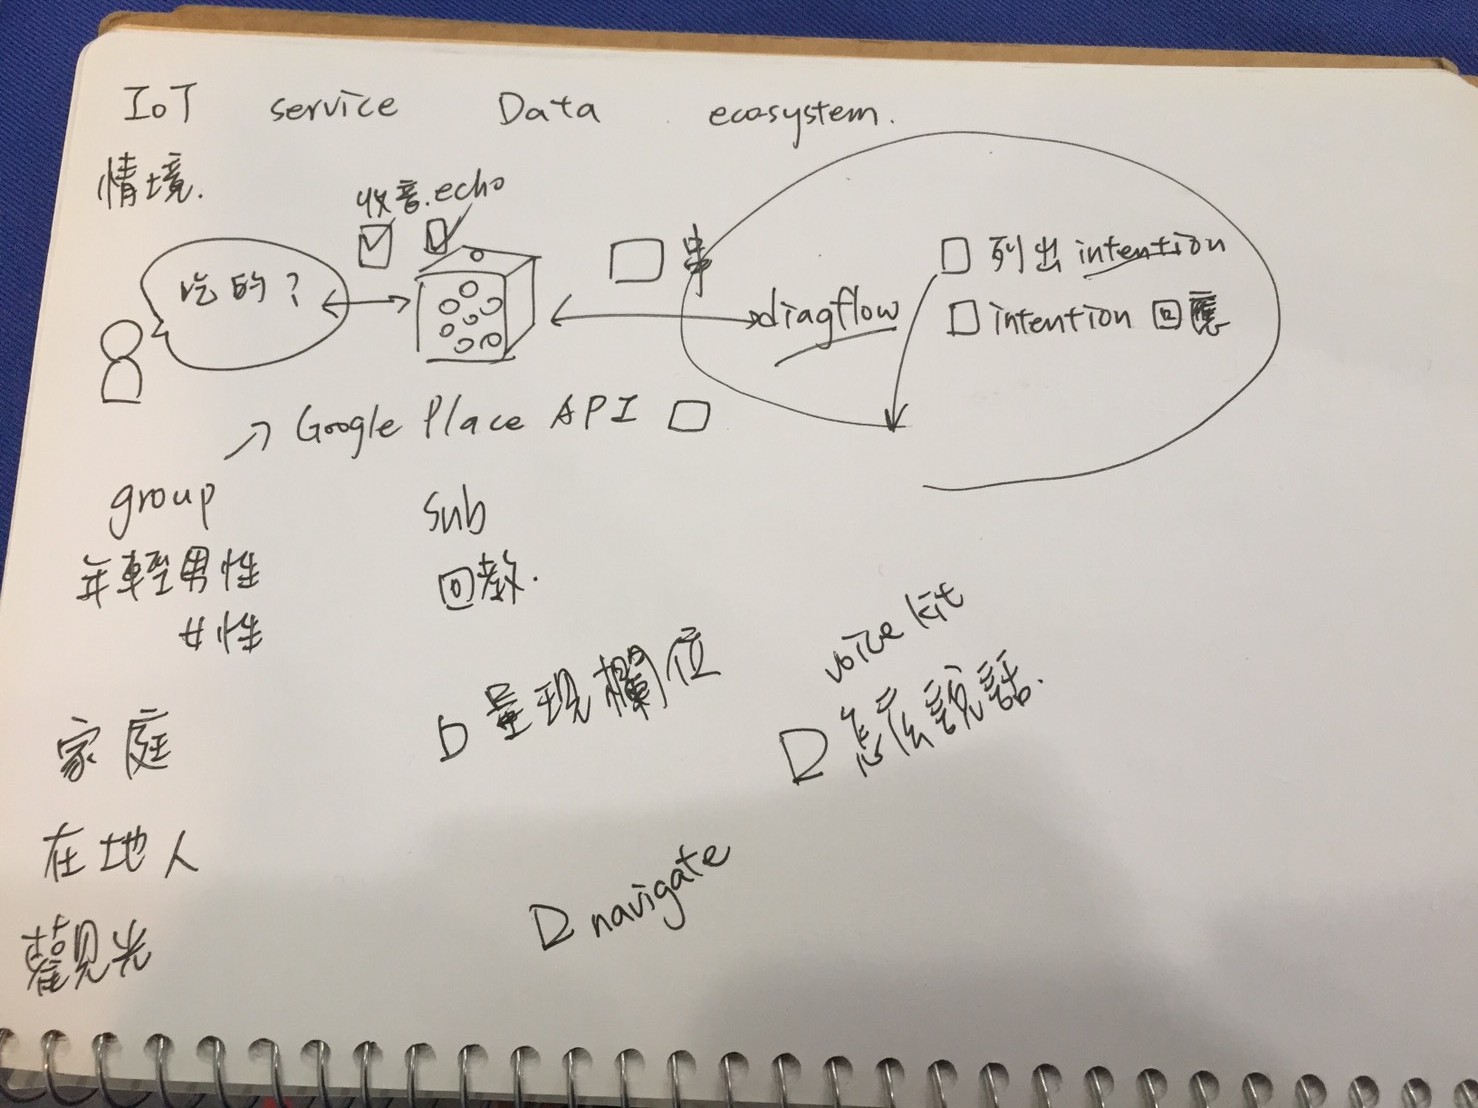 IoT service Data ecosystem.
情境.
收音.echo
吃的?
串
diagflow
列出 intention
intention 回應
Google Place API
group
sub
年輕男性
女性
回教.
家庭
在地人
觀光
量現欄位
voice kit
怎么說話.
navigate